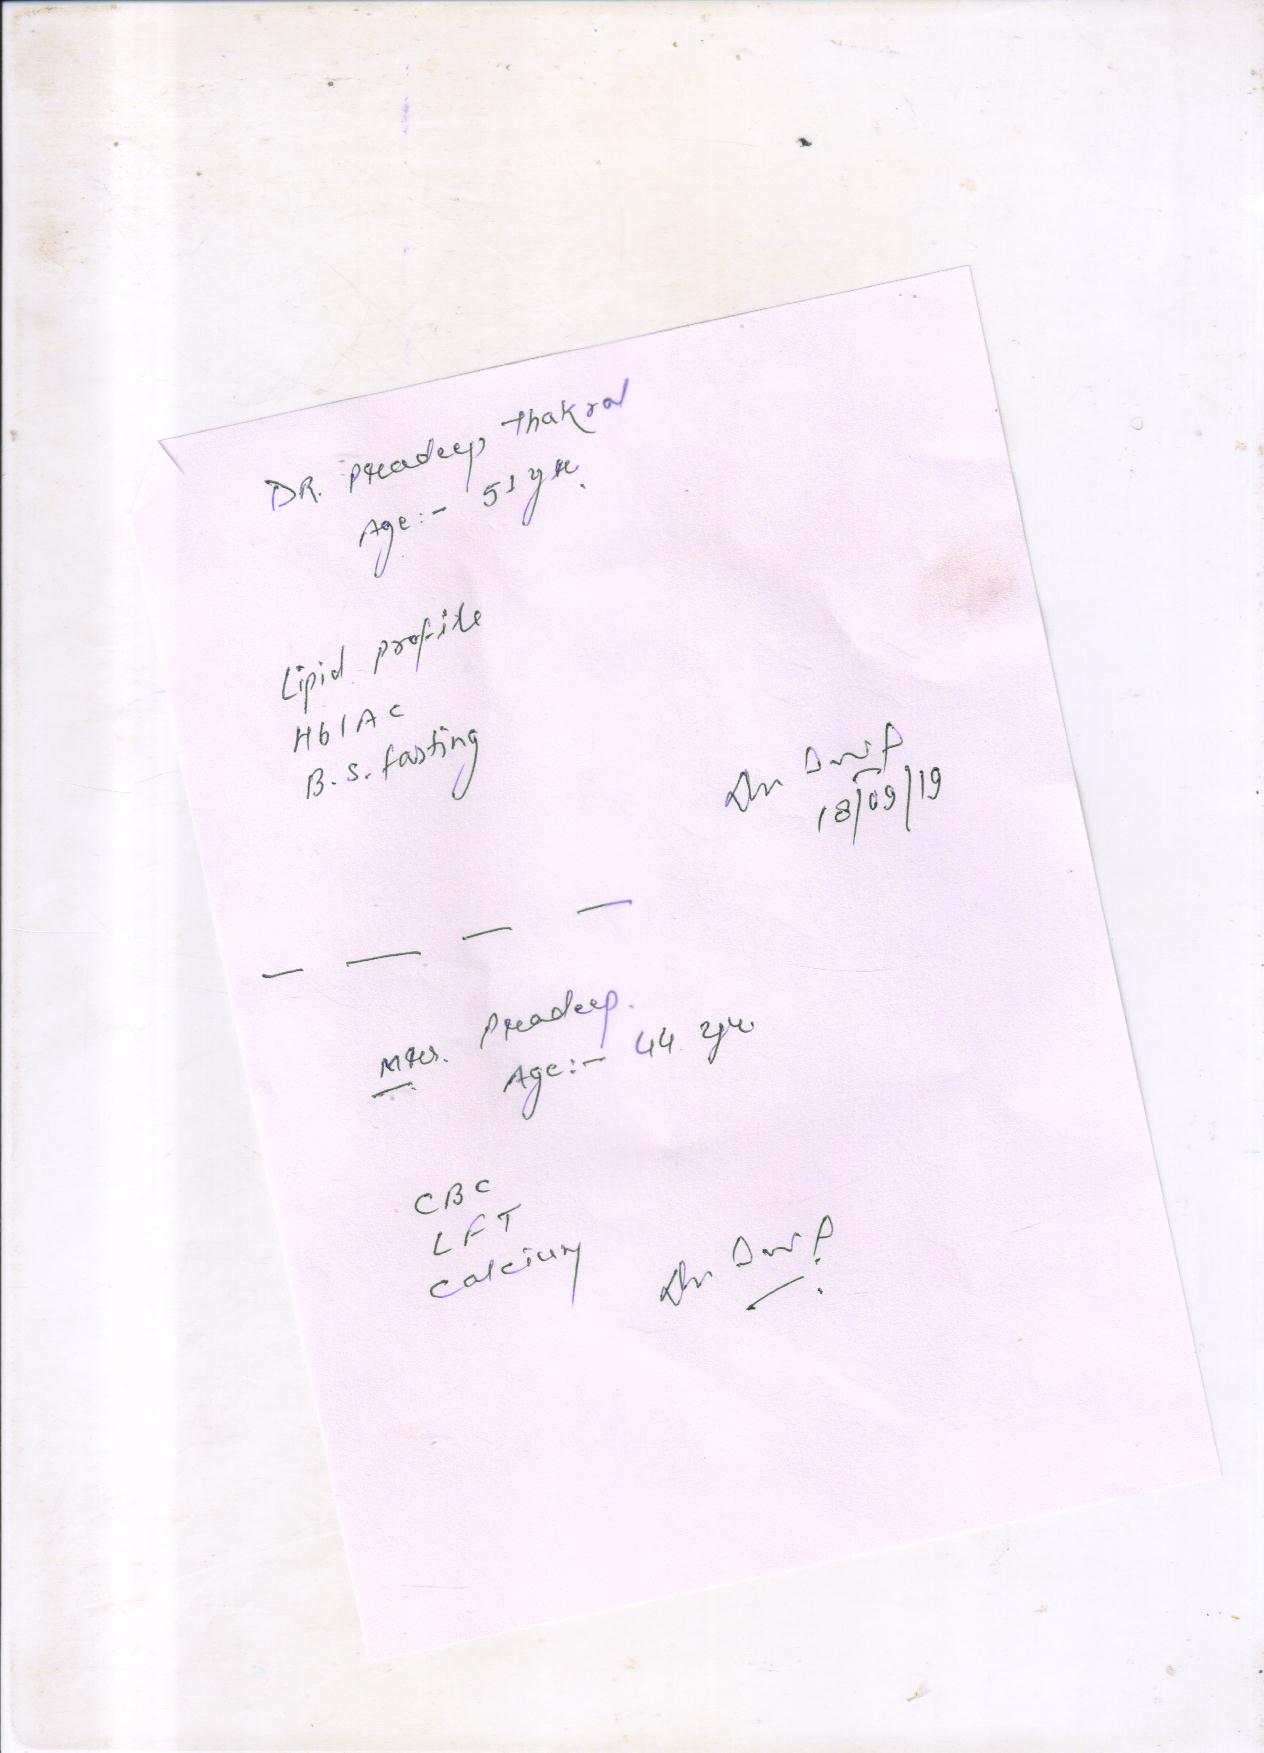 DR. Pradeep Thakral
Age:- 51 yr.
Lipid profile
Hb1Ac
B.S. fasting
Dr
18/09/19
Mrs. Pradeep.
Age:- 44 yr
CBC
LFT
Calcium
Dr